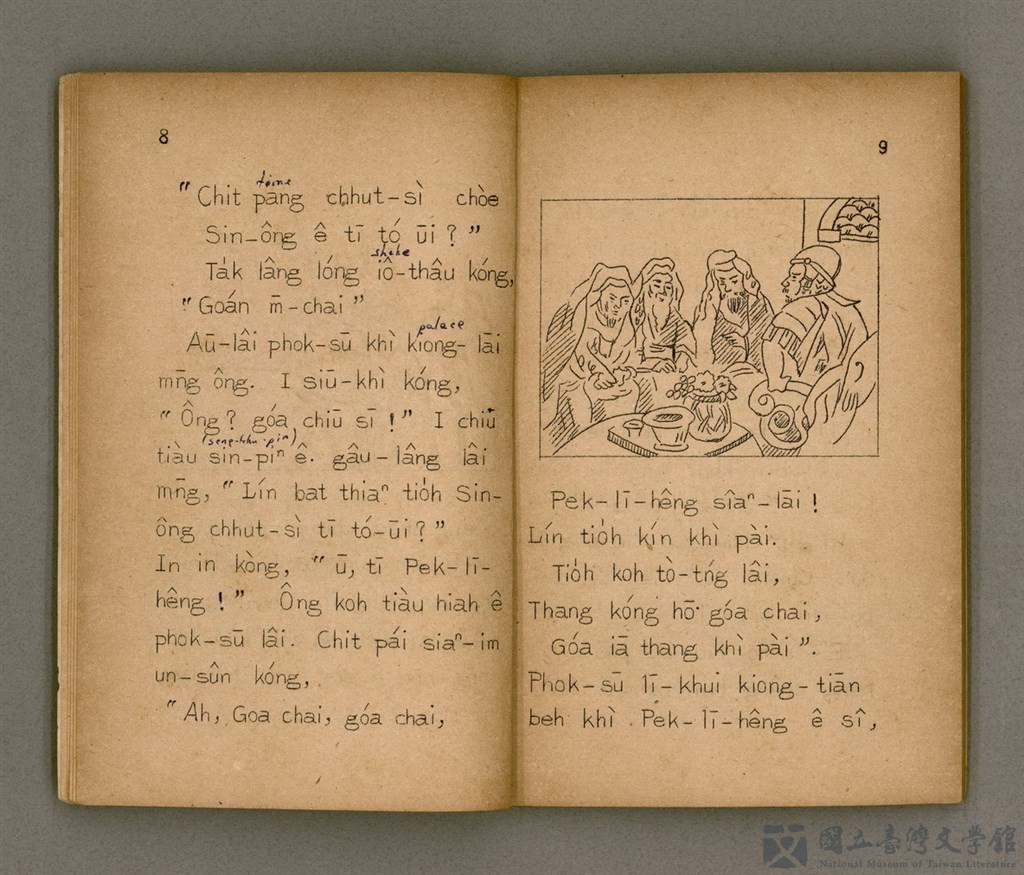 8
time
"Chit pang chhut-sì chòe
Sin-ông ê tī tó ūi?"
shake
Ta̍k lâng lóng iô-thâu kóng,
"Goán m̄-chai"
palace
Aū-lâi phok-sū khì kiong-lāi
mn̄g ông. I siū-khì kóng,
"Ông? góa chiū sī!" I chiū
(seng-khu-pin)
tiàu sin-piⁿ ê gâu-lâng lâi
mn̄g, "Lín bat thiaⁿ tio̍h Sin-
ông chhut-sì tī tó-ūi?"
In in kòng, "ū, tī Pek-lī-
hêng!" Ông koh tiàu hiah ê
phok-sū lâi. Chit pái siaⁿ-im
un-sûn kóng,
"Ah, Goa chai, góa chai,
9
Pek-lī-hêng sîaⁿ-lāi!
Lín tio̍h kín khì pài.
Tio̍h koh tò-tńg lâi,
Thang kóng hō͘ góa chai,
Góa iā thang khì pài".
Phok-sū lī-khui kiong-tiān
beh khì Pek-lī-hêng ê sî,
國立臺灣文學館
National Museum of Taiwan Literature